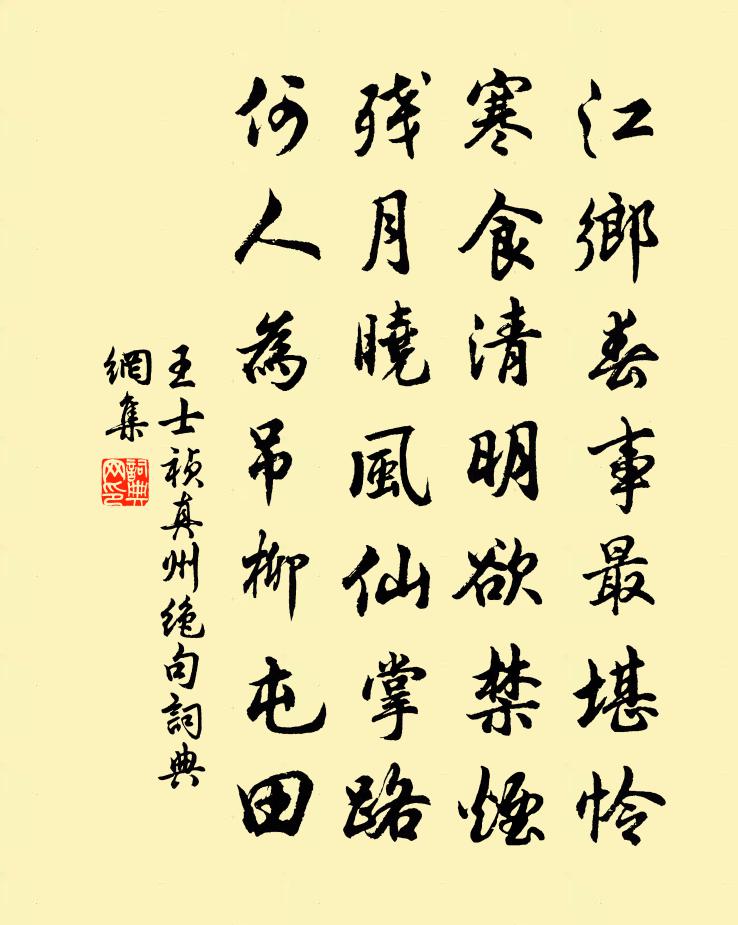 江鄉春事最堪怜
寒食清明欲禁煙
残月曉風仙掌路
何人為吊柳屯田
王士禎真州绝句詞典
網集
詞典網印